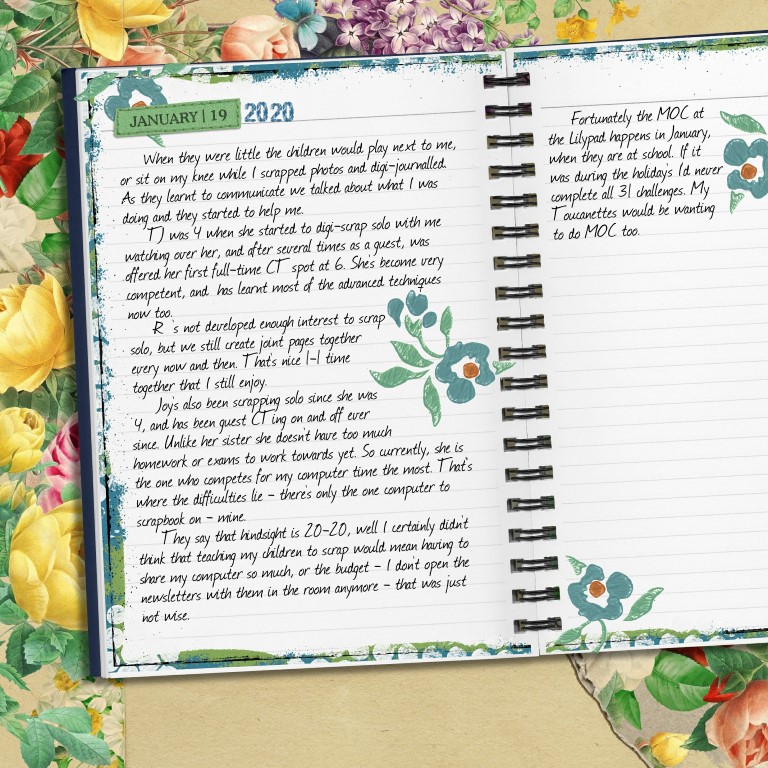 JANUARY | 19 2020
When they were little the children would play next to me,
or sit on my knee while I scrapped photos and digi-journalled.
As they learnt to communicate we talked about what I was
doing and they started to help me.
TJ was 4 when she started to digi-scrap solo with me
watching over her, and after several times as a guest, was
offered her first full-time CT spot at 6. She's become very
competent, and has learnt most of the advanced techniques
now too.
R 's not developed enough interest to scrap
solo, but we still create joint pages together
every now and then. That's nice 1-1 time
together that I still enjoy.
Joy's also been scrapping solo since she was
4, and has been guest CT ing on and off ever
since. Unlike her sister she doesn't have too much
homework or exams to work towards yet. So currently, she is
the one who competes for my computer time the most. That's
where the difficulties lie - there's only the one computer to
scrapbook on - mine.
They say that hindsight is 20-20, well I certainly didn't
think that teaching my children to scrap would mean having to
share my computer so much, or the budget - I don't open the
newsletters with them in the room anymore - that was just
not wise.
Fortunately the MOC at
the Lilypad happens in January,
when they are at school. If it
was during the holidays I'd never
complete all 31 challenges. My
Toucanettes would be wanting
to do MOC too.